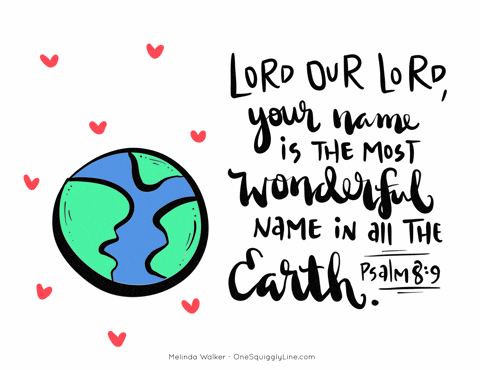 LORD OUR LORD,
your name
is THE MOST
Wonderful
NAME IN all THE
Earth. Psalm 8:9
Melinda Walker - OneSquigglyLine.com